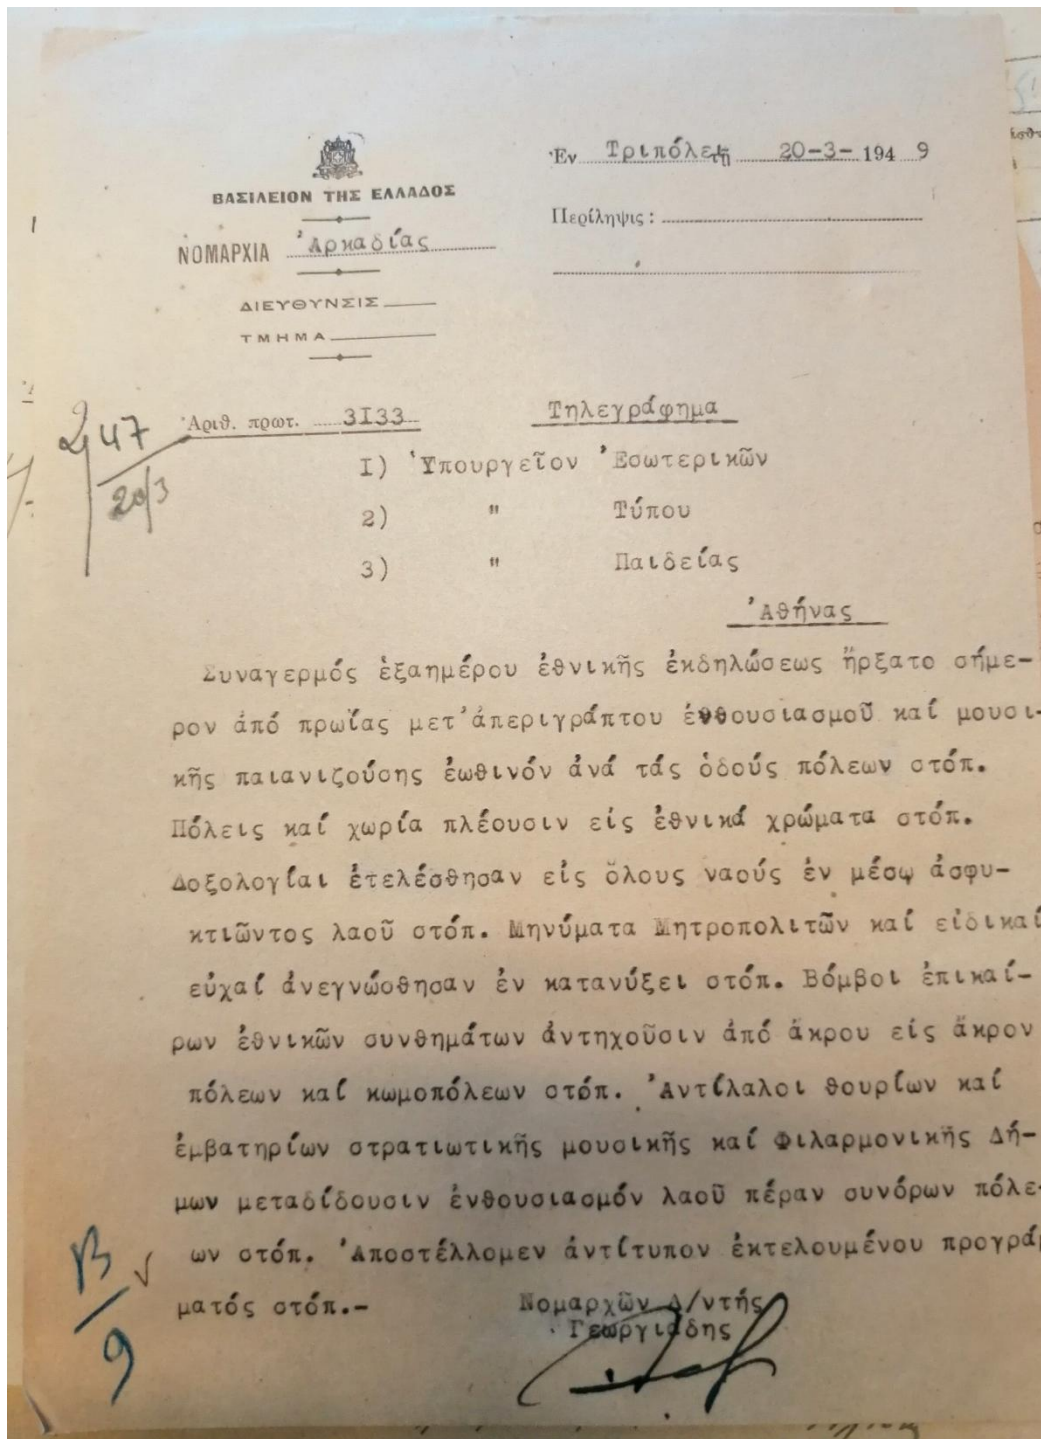 Ἐν Τριπόλει τῇ 20-3- 194 9
ΒΑΣΙΛΕΙΟΝ ΤΗΣ ΕΛΛΑΔΟΣ
Περίληψις :
ΝΟΜΑΡΧΙΑ Ἀρκαδίας
ΔΙΕΥΘΥΝΣΙΣ
ΤΜΗΜΑ
247
20/3
Ἀριθ. πρωτ. 3133
Τηλεγράφημα
1) Ὑπουργεῖον Ἐσωτερικῶν
2) " Τύπου
3) " Παιδείας
Ἀθήνας
Συναγερμός ἑξαημέρου ἐθνικῆς ἐκδηλώσεως ἤρξατο σήμε-
ρον ἀπό πρωΐας μετ' ἀπεριγράπτου ἐνθουσιασμοῦ καί μουσι-
κῆς παιανιζούσης ἑωθινόν ἀνά τάς ὁδούς πόλεων στόπ.
Πόλεις καί χωρία πλέουσιν είς ἐθνικά χρώματα στόπ.
Δοξολογίαι ἐτελέσθησαν είς ὅλους ναούς ἐν μέσῳ ἀσφυ-
κτιῶντος λαοῦ στόπ. Μηνύματα Μητροπολιτῶν καί εἰδικαί
εὐχαί ἀνεγνώσθησαν ἐν κατανύξει στόπ. Βόμβοι ἐπικαί-
ρων ἐθνικῶν συνθημάτων ἀντηχοῦσιν ἀπό ἄκρου είς ἄκρον
πόλεων καί κωμοπόλεων στόπ. Ἀντίλαλοι θουρίων καί
ἐμβατηρίων στρατιωτικῆς μουσικῆς καί Φιλαρμονικῆς Δή-
μων μεταδίδουσιν ἐνθουσιασμόν λαοῦ πέραν συνόρων πόλε-
ων στόπ. Ἀποστέλλομεν ἀντίτυπον ἐκτελουμένου προγράμ
ματός στόπ.-
Νομαρχῶν Δ/ντής
Γεωργιάδης
Β
9